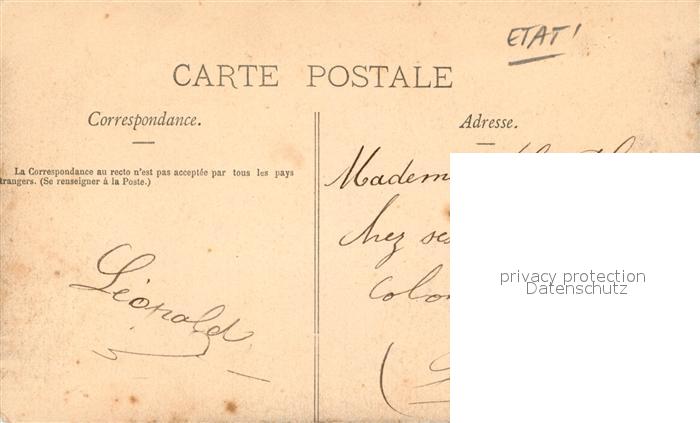 ETAT!
CARTE POSTALE
Correspondance.
Adresse.
La Correspondance au recto n'est pas acceptée par tous les pays
trangers. (Se renseigner à la Poste.)
Léopold
Madem
chez ses
colon
privacy protection
Datenschutz